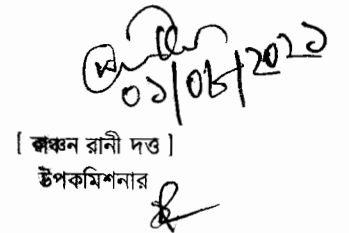 ০১/০৮/২০২১
[ কাঞ্চন রানী দত্ত ]
উপকমিশনার